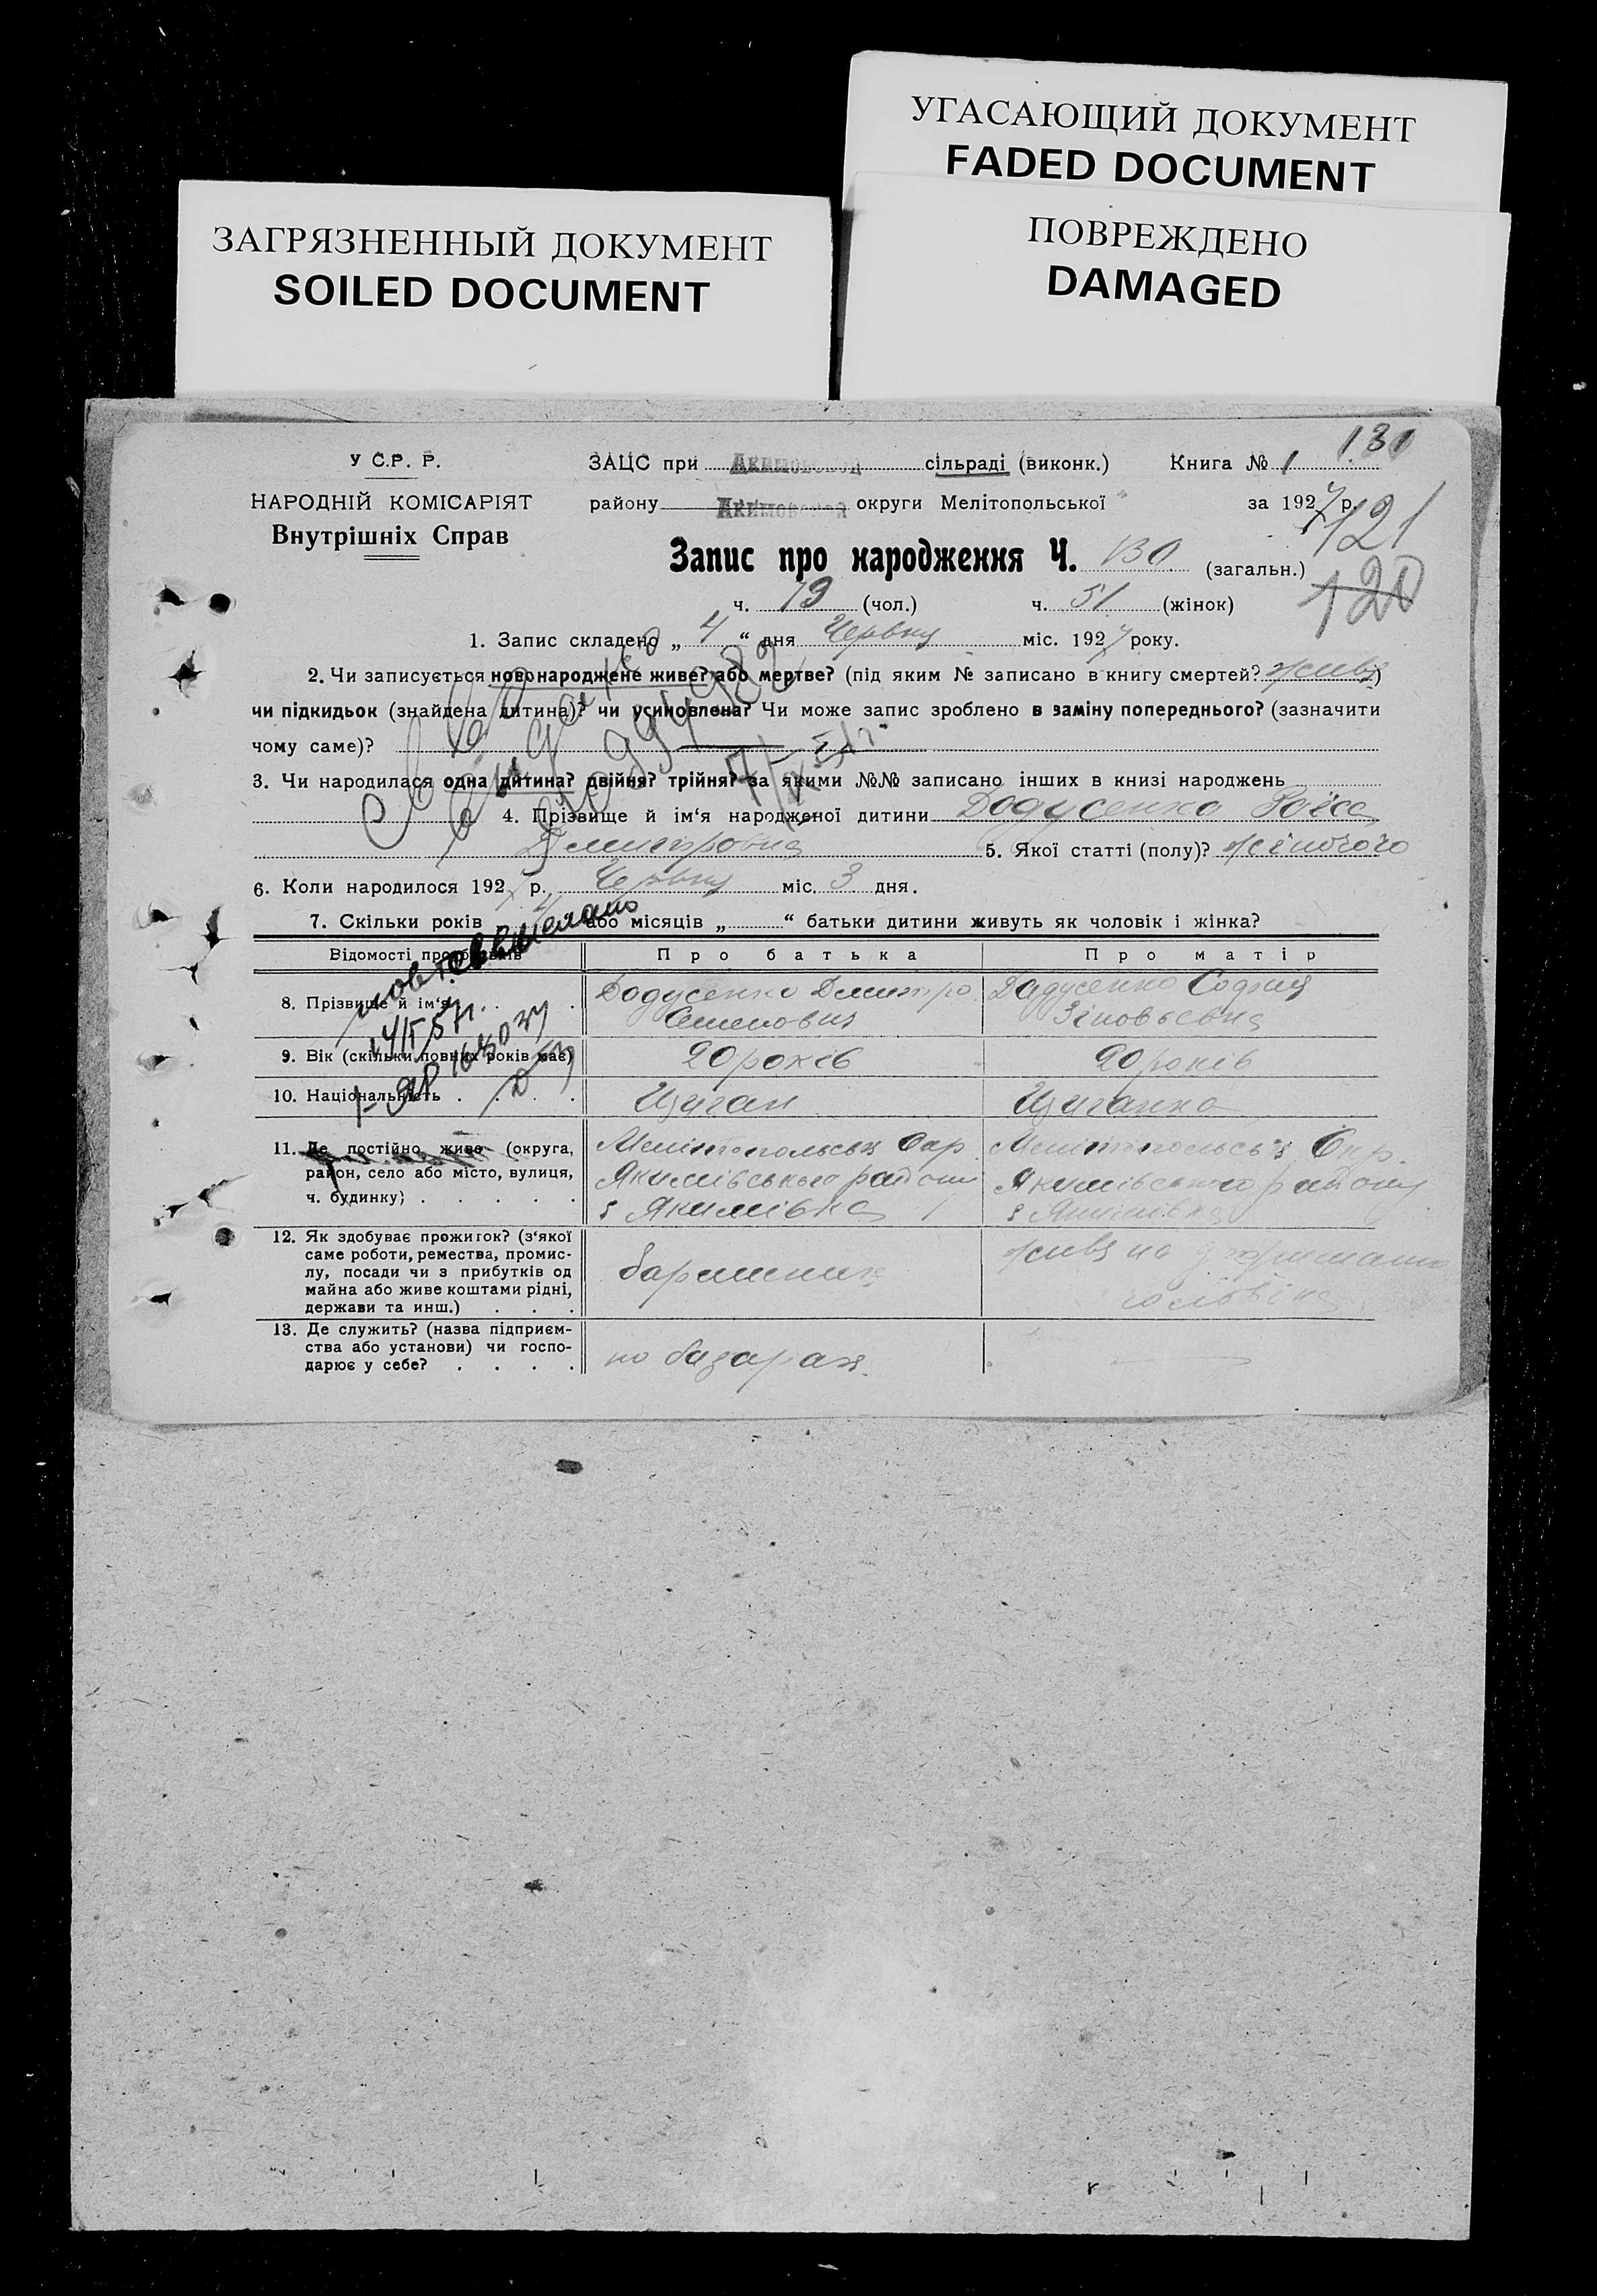 УГАСАЮЩИЙ ДОКУМЕНТ
FADED DOCUMENT
ЗАГРЯЗНЕННЫЙ ДОКУМЕНТ
SOILED DOCUMENT
ПОВРЕЖДЕНО
DAMAGED
131
У С.Р. Р.
ЗАЦС при Акимовской сільраді (виконк.) Книга № 1
НАРОДНІЙ КОМІСАРІЯТ
району Акимовской округи Мелітопольської за 1927 р.
Внутрішніх Справ
121
Запис про народження Ч. 130. (загальн.)
120
ч. 79 (чол.) ч. 51 (жінок)
1. Запис складено „ 4 “ дня Червня міс. 1927 року.
2. Чи записується новонароджене живе? або мертве? (під яким № записано в книгу смертей? живе)
чи підкидьок (знайдена дитина)? чи усиновлена? Чи може запис зроблено в заміну попереднього? (зазначити
чому саме)?
3. Чи народилася одна дитина? двійня? трійня? за якими №№ записано інших в книзі народжень
4. Прізвище й ім‘я народженої дитини Додусенко Раїса
Дмитровна 5. Якої статті (полу)? жіночого
6. Коли народилося 1927 р. Червня міс. 3 дня.
7. Скільки років або місяців „ “ батьки дитини живуть як чоловік і жінка?
Відомості про батьків Про батька Про матір
8. Прізвище й ім‘я Додусенко Дмитро Дадусенко София
Семенович Зіновьевна
9. Вік (скільки повних років має) 20 років 20 років
10. Національність Циган Циганка
11. Де постійно живе (округа, Мелітопольськ Окр. Мелітопольськ Окр.
район, село або місто, вулиця, Якимівського району Якимівського району
ч. будинку) с Якимівка с Якимівка
12. Як здобуває прожиток? (з‘якої
саме роботи, ремества, промис-
лу, посади чи з прибутків од
майна або живе коштами рідні,
держави та инш.)
барышник живе на
чоловіка
13. Де служить? (назва підприєм-
ства або установи) чи госпо-
дарює у себе?
по базарах